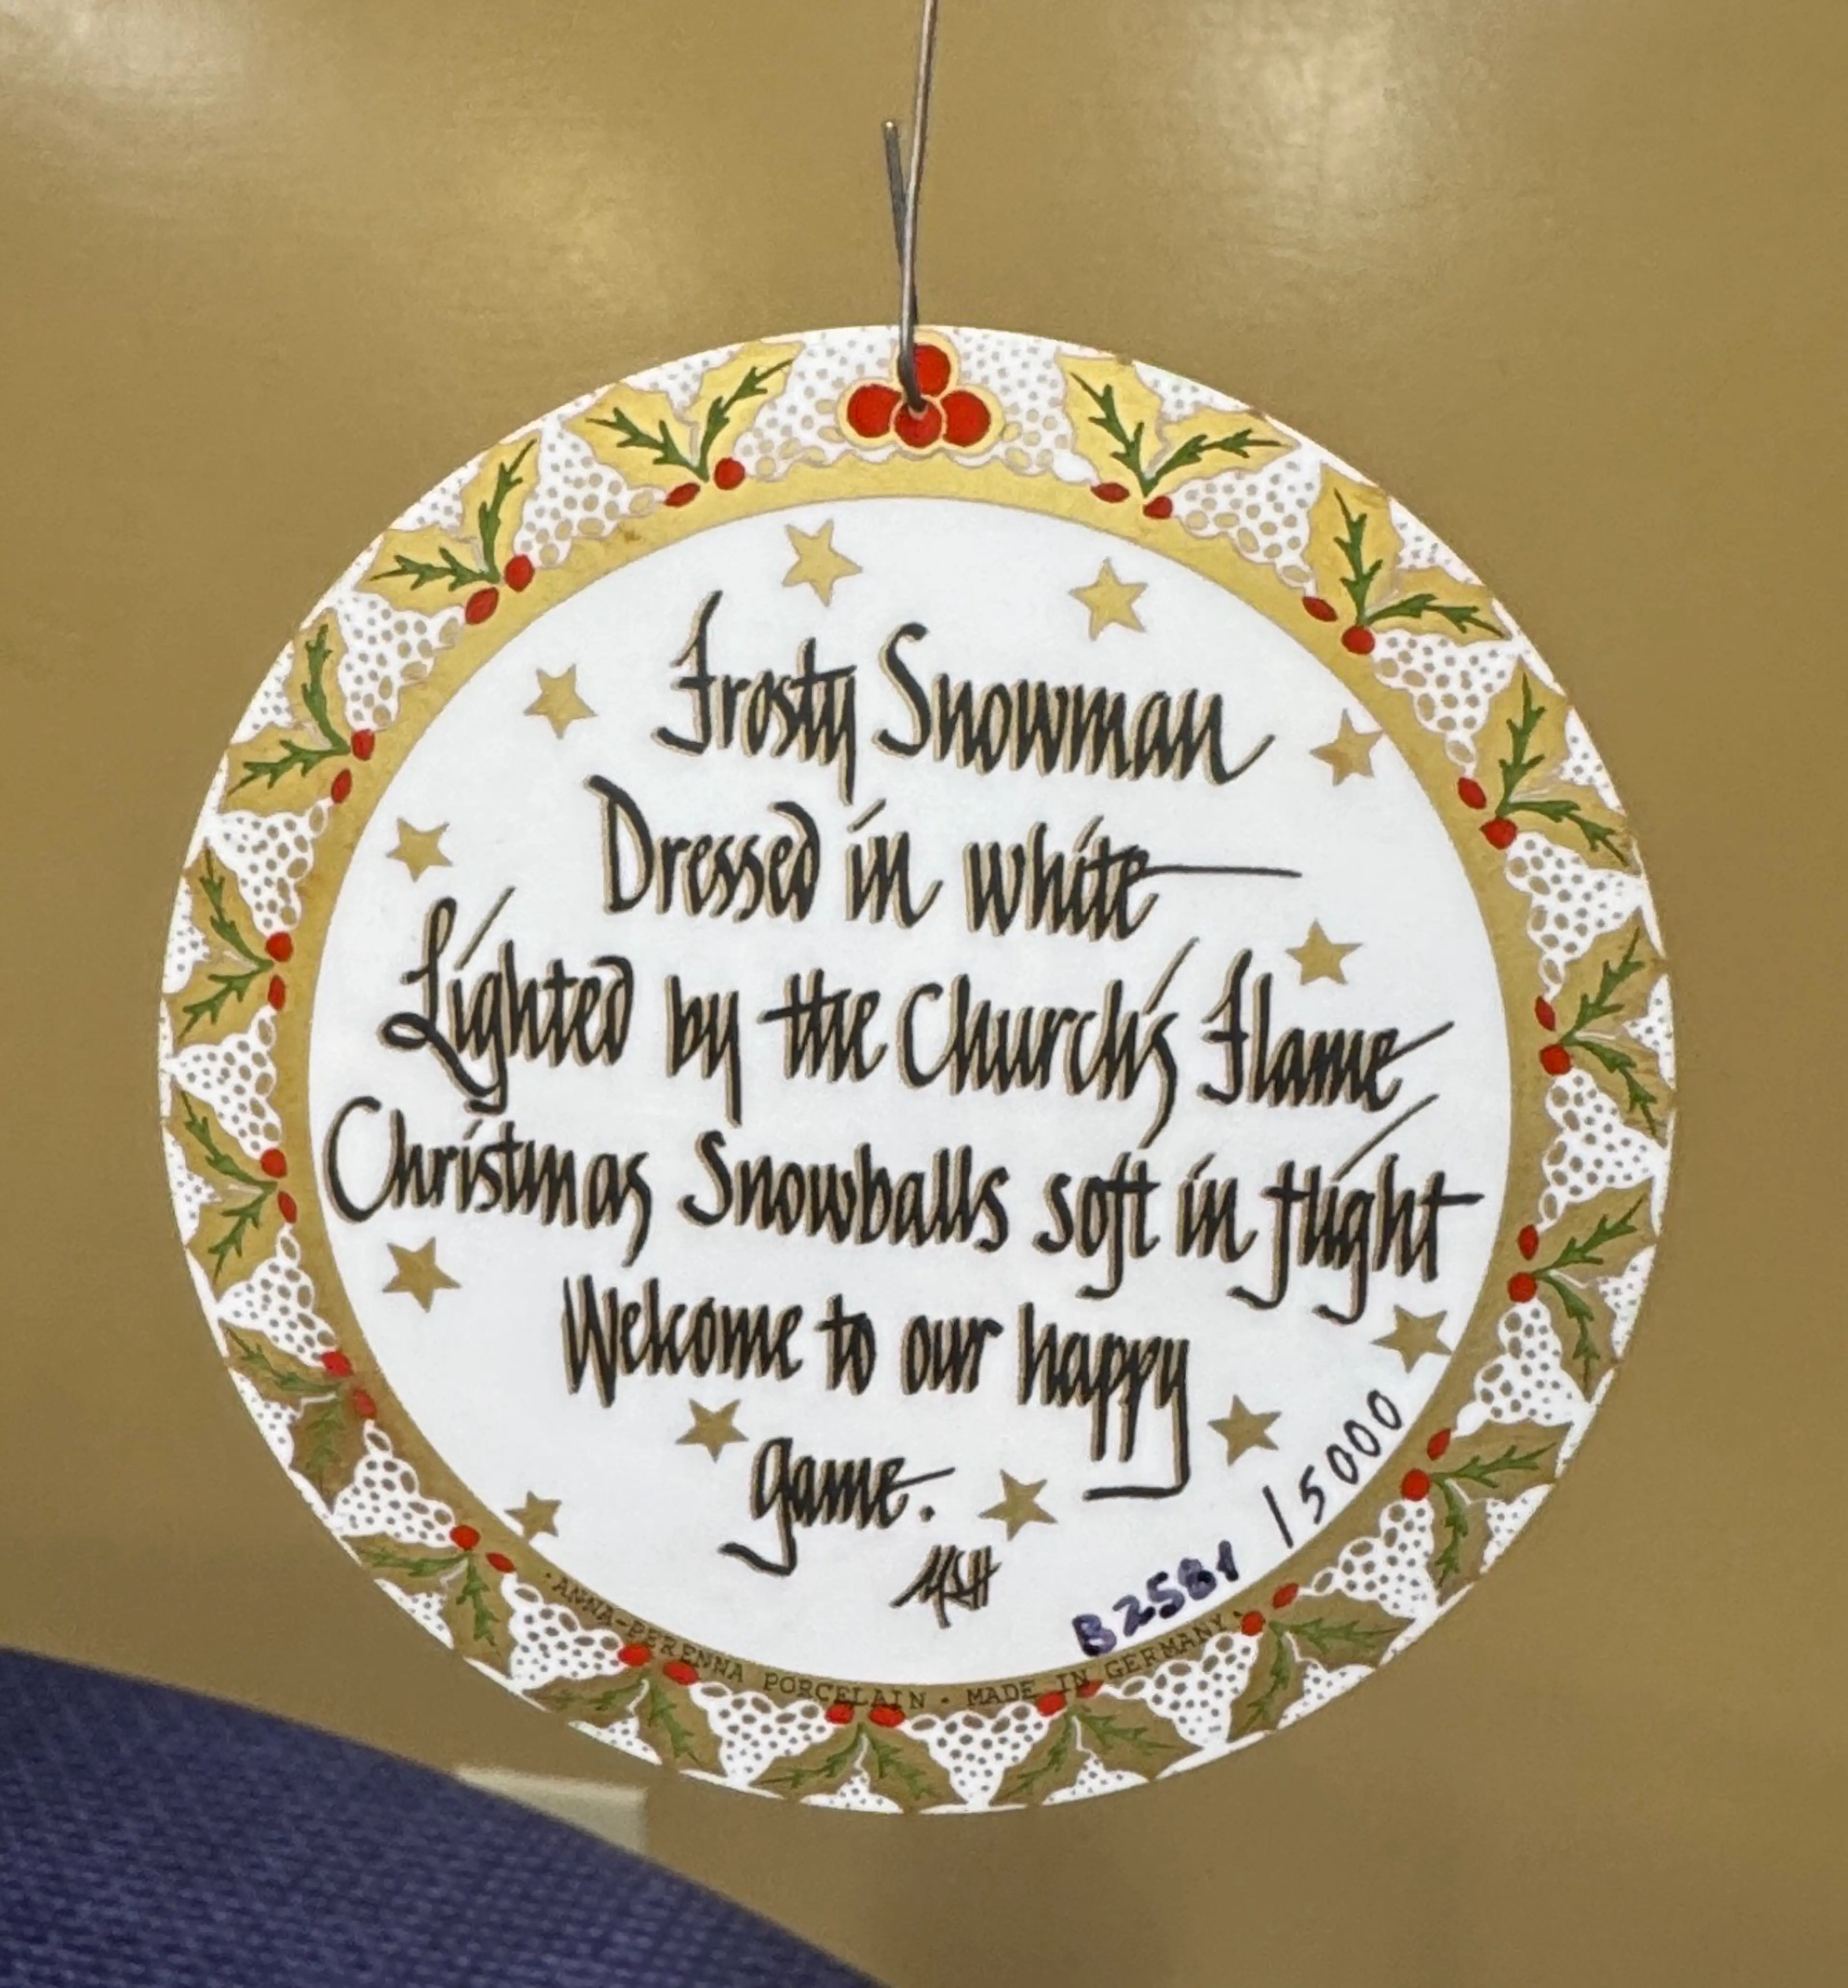 Frosty Snowman
Dressed in white
Lighted by the Church's Flame
Christmas Snowballs soft in flight
Welcome to our happy
game.
B2581 / 5000
· ANNA-PERENNA PORCELAIN · MADE IN GERMANY ·